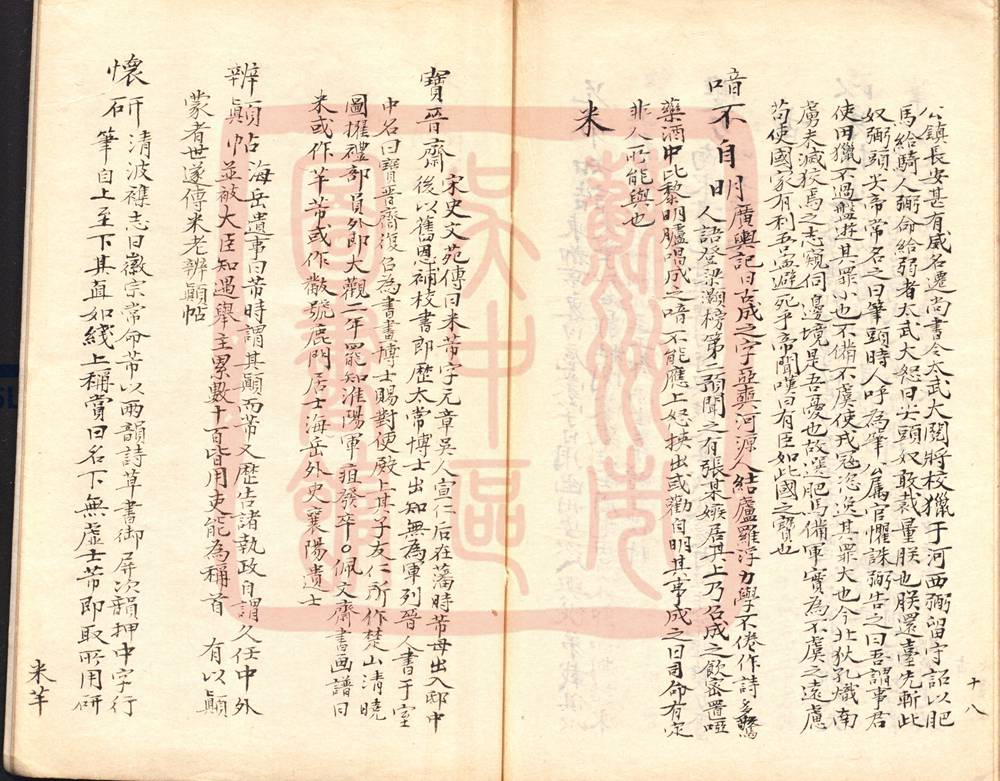 公鎮長安甚有威名遷尚書令太武大閱將校獵于河西弼留守詔以肥
馬給騎人弼命給弱者太武大怒曰尖頭奴敢裁量朕也朕還臺先斬此
奴弼頭尖帝常名之曰筆頭時人呼為筆公屬官懼誅弼告之曰吾謂事君
使田獵不過盤遊其罪小也不備不虞使戎寇恣逸其罪大也今北狄孔熾南
虜未滅狡焉之志窺伺邊境是吾憂也故選肥馬備軍實為不虞之遠慮
苟使國家有利吾寧避死乎帝聞嘆曰有臣如此國之寶也
喑不自明 廣輿記曰古成之字亞奭河源人結廬羅浮力學不倦作詩多驚
人語登梁灝榜第二臚聞之有張某嫉居其上乃召成之飲密置啞
藥酒中比黎明臚唱成之喑不能應上怒挾出或勸自明其事成之曰司命有定
非人所能與也
米
寶晉齋 宋史文苑傳曰米芾字元章吳人宣仁后在藩時芾母出入邸中
後以舊恩補校書郎歷太常博士出知無為軍列晉人書于室
中名曰寶晉齋復召為書畫博士賜對便殿上其子友仁所作楚山清曉
圖擢禮部員外郎大觀二年罷知淮陽軍疽發卒○佩文齋書画譜曰
米或作芉芾或作黻號鹿門居士海岳外史襄陽遺士
辨顛帖 海岳遺事曰芾時謂其顛而芾又歷告諸執政自謂久任中外
並被大臣知遇舉主累數十百皆用吏能為稱首 有以顛
蒙者世遂傳米老辨顛帖
懷研 清波襍志曰徽宗常命芾以兩韻詩草書御屏次韻押中字行
筆自上至下其直如綫上稱賞曰名下無虛士芾即取所用研
米芉
十八
蘇州市
吳中區
圖書館